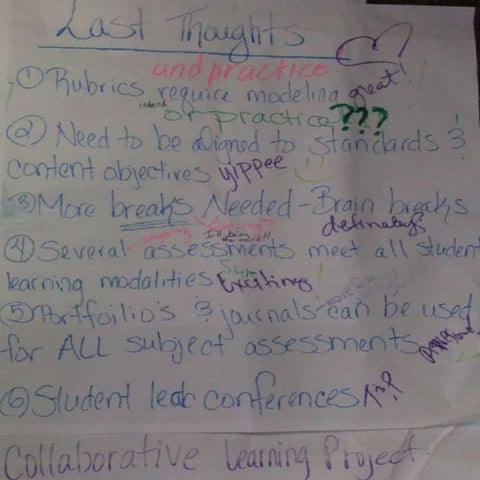 Last Thoughts
and practice
① Rubrics require modeling great!
indeed or practice???
② Need to be aligned to standards &
content objectives yippee
③ More breaks Needed - Brain breaks
definitely
④ Several assessments meet all student
learning modalities Exciting
⑤ Portfoilio's & journals can be used
for ALL subject assessments
⑥ Student led conferences
Collaborative Learning Project